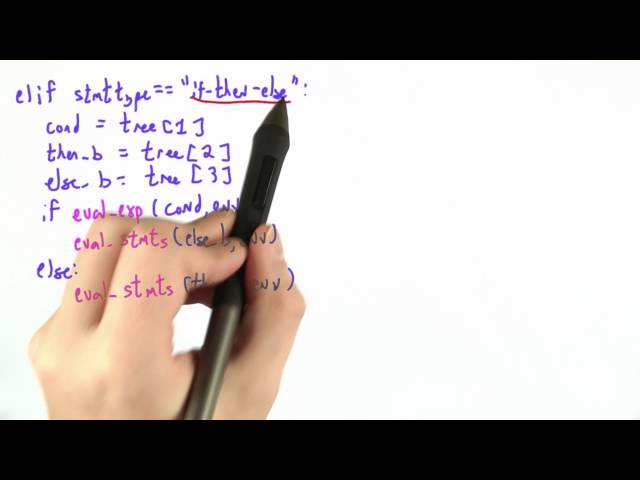 elif stmttype == "if-then-else":
cond = tree[1]
then_b = tree[2]
else_b = tree[3]
if eval_exp(cond,
eval_stmts(else_b, env)
else:
eval_stmts